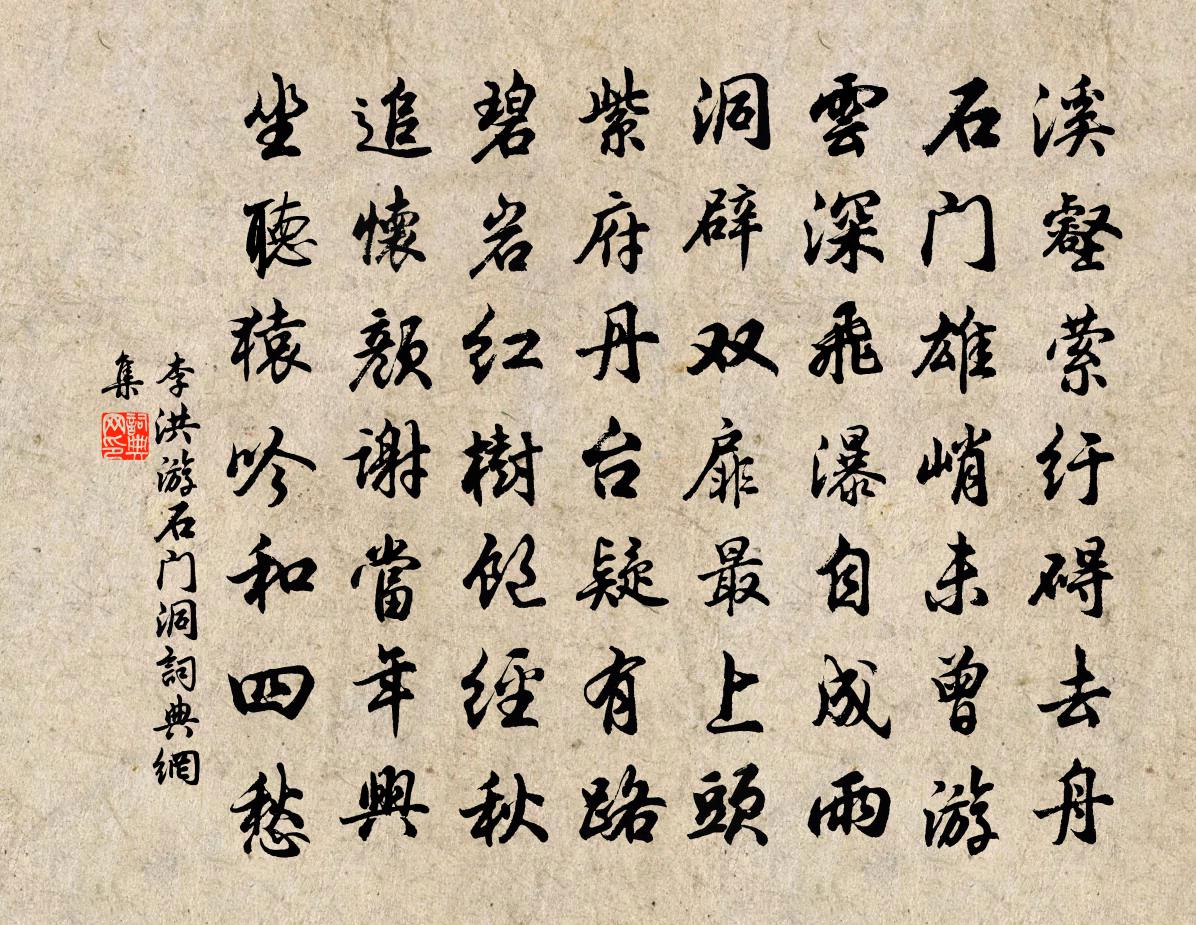 溪壑萦纡碍去舟
石门雄峭未曾游
雲深飛瀑自成雨
洞辟双扉最上頭
紫府丹台疑有路
碧岩红樹飽經秋
追懷顔謝當年興
坐聽猿吟和四愁
李洪游石门洞詞典網
集
詞典网印